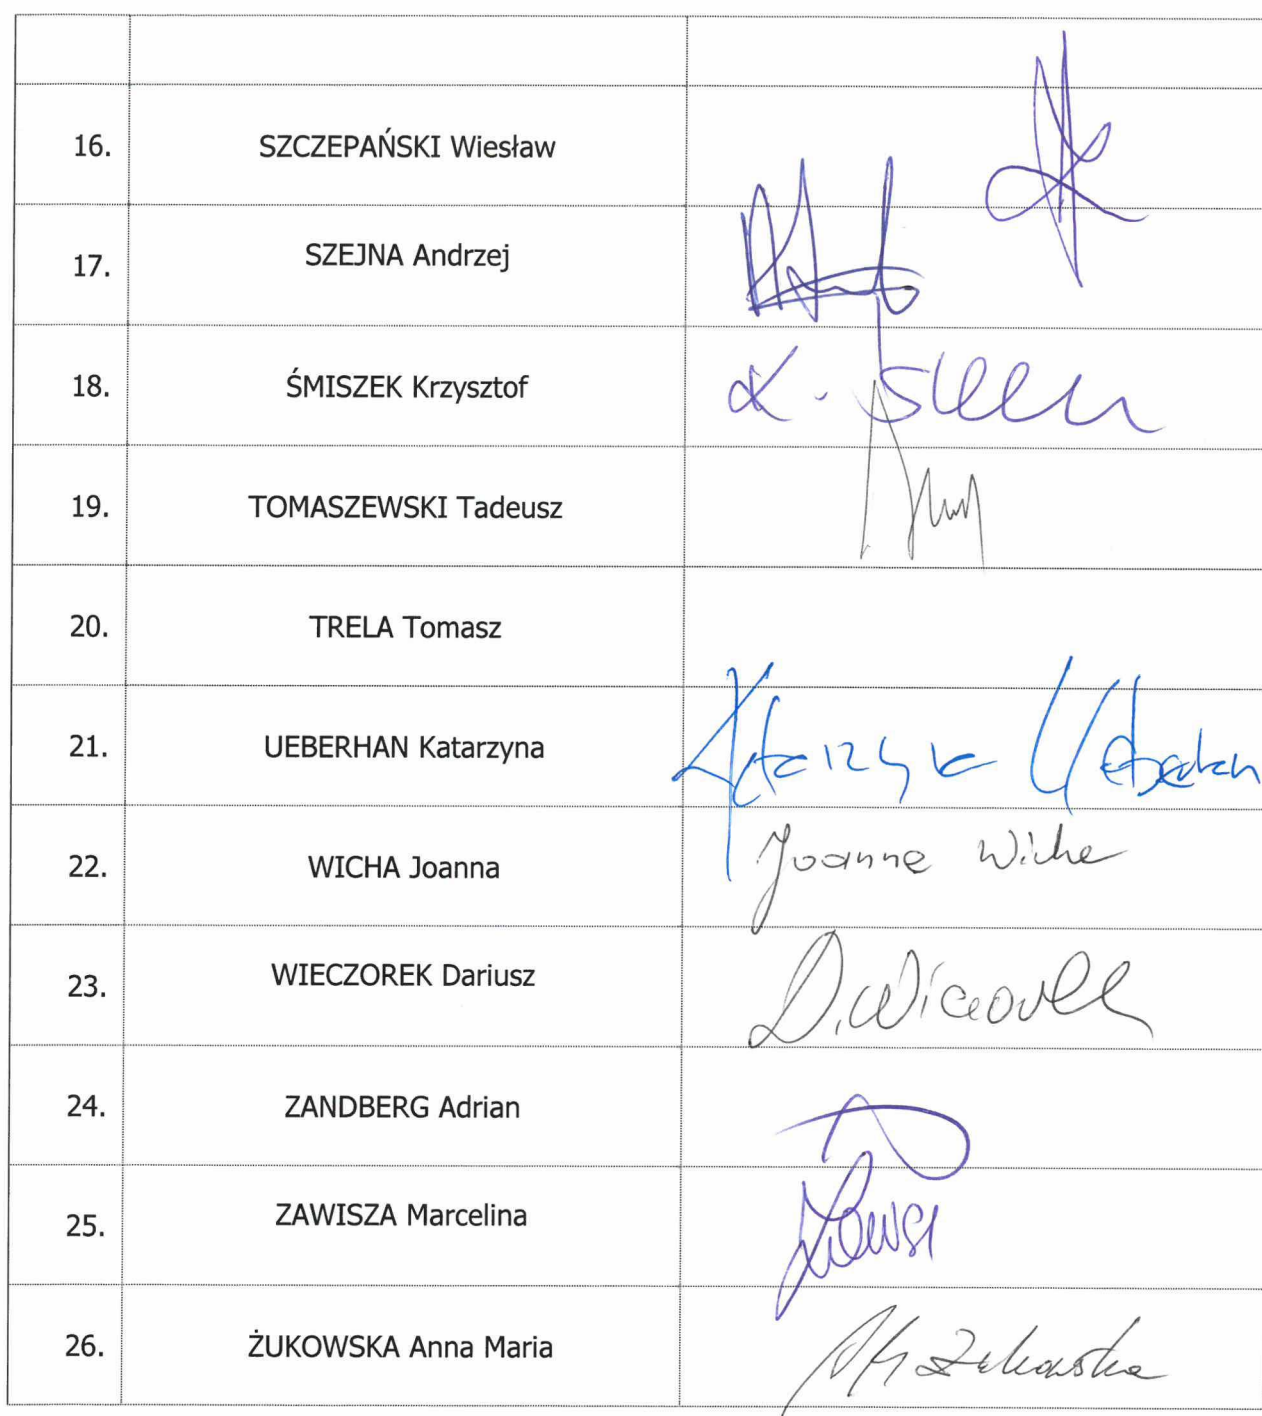 16. SZCZEPAŃSKI Wiesław
17. SZEJNA Andrzej
18. ŚMISZEK Krzysztof
19. TOMASZEWSKI Tadeusz
20. TRELA Tomasz
21. UEBERHAN Katarzyna Katarzyna Ueberhan
22. WICHA Joanna Joanna Wicha
23. WIECZOREK Dariusz D. Wieczorek
24. ZANDBERG Adrian
25. ZAWISZA Marcelina
26. ŻUKOWSKA Anna Maria Żukowska